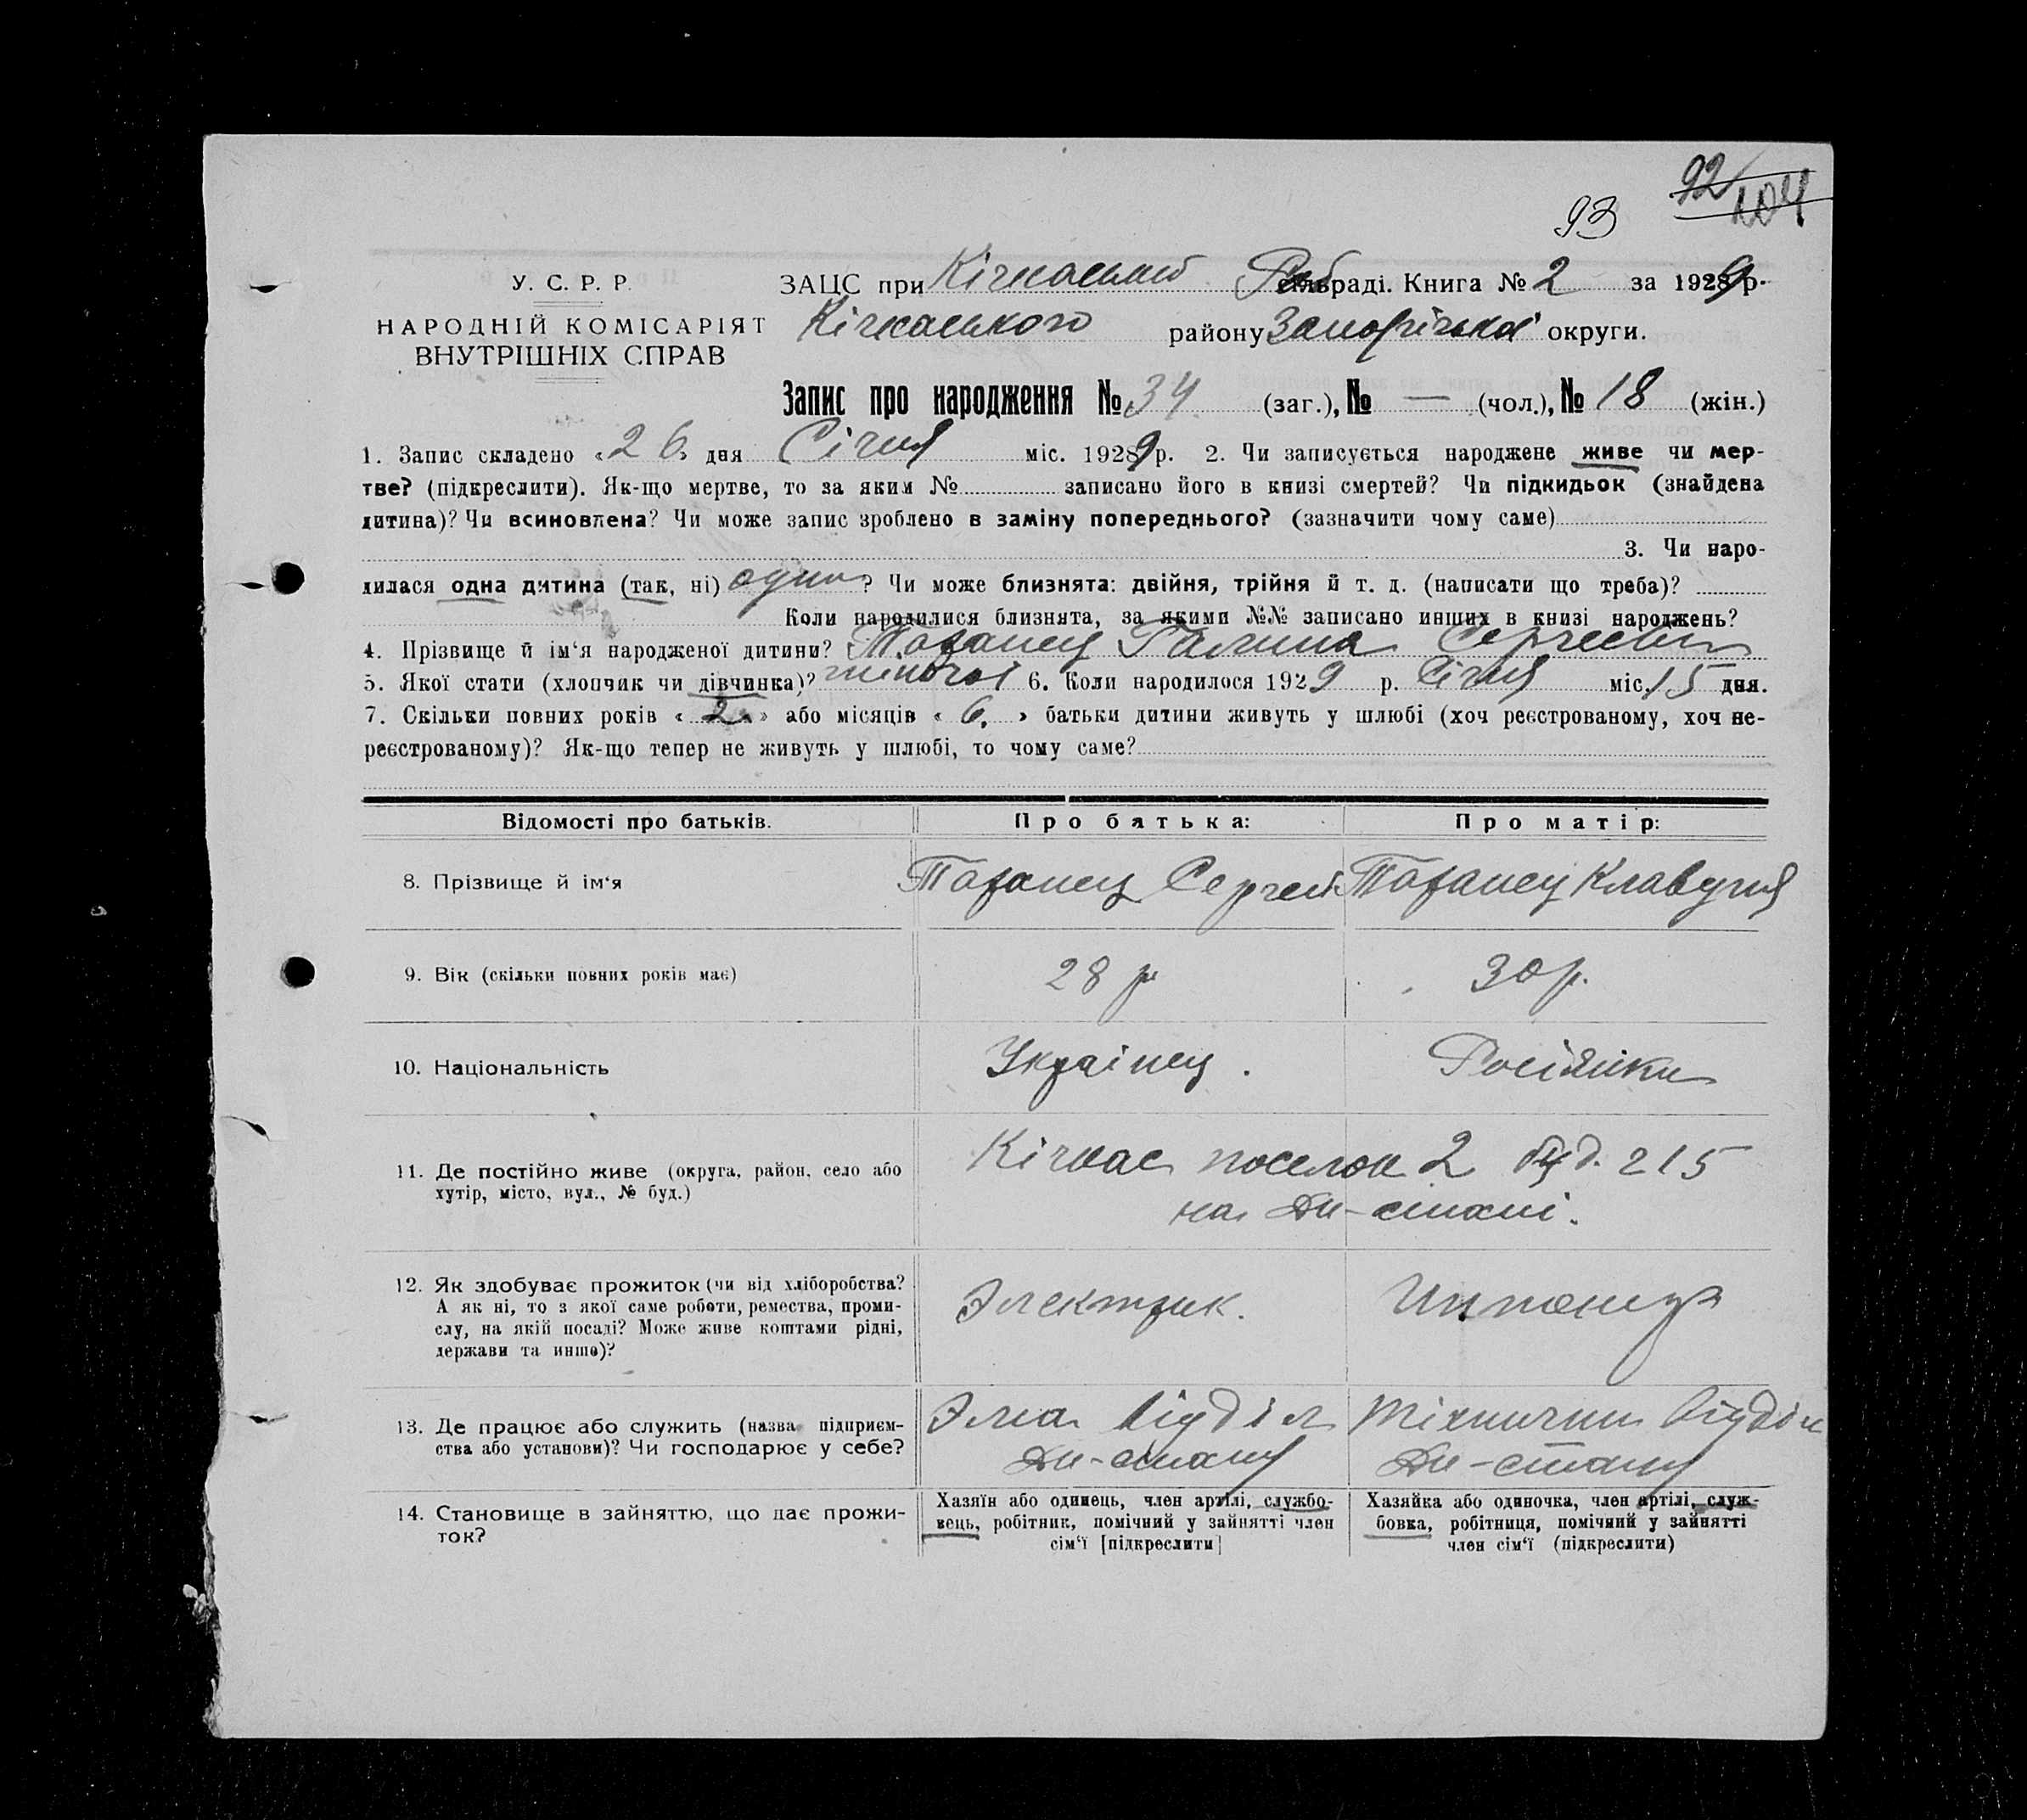 92 104
93
У. С. Р. Р. ЗАЦС при Кічкаський Раб раді. Книга № 2 за 1929 р.
НАРОДНІЙ КОМІСАРІЯТ Кічкаського району Запоріської округи.
ВНУТРІШНІХ СПРАВ
Запис про народження № 34 (заг.), № — (чол.), № 18 (жін.)
1. Запис складено «26» дня Січня міс. 1929 р. 2. Чи записується народжене живе чи мер-
тве? (підкреслити). Як-що мертве, то за яким № записано його в книзі смертей? Чи підкидьок (знайдена
дитина)? Чи всиновлена? Чи може запис зроблено в заміну попереднього? (зазначити чому саме)
3. Чи наро-
дилася одна дитина (так, ні) одна? Чи може близнята: двійня, трійня й т. д. (написати що треба)?
Коли народилися близнята, за якими №№ записано инших в книзі народжень?
4. Прізвище й ім‘я народженої дитини? Тазанец Галина
5. Якої стати (хлопчик чи дівчинка)? жіночої 6. Коли народилося 1929 р. Січня міс. 15 дня.
7. Скільки повних років «2» або місяців «6» батьки дитини живуть у шлюбі (хоч реєстрованому, хоч не-
реєстрованому)? Як-що тепер не живуть у шлюбі, то чому саме?
Відомості про батьків. Про батька: Про матір:
8. Прізвище й ім‘я Тазанец Сергей Тазанец Клавдия
9. Вік (скільки повних років має) 28 р 30 р.
10. Національність Українец. Росіянка
11. Де постійно живе (округа, район, село або Кічкас поселок 2 буд. 215
хутір, місто, вул., № буд.) на Дн-стані.
12. Як здобуває прожиток (чи від хліборобства? Электрик.
А як ні, то з якої саме роботи, ремества, проми-
слу, на якій посаді? Може живе коштами рідні,
держави та инше)?
13. Де працює або служить (назва підприєм- Відділ Відділ
ства або установи)? Чи господарює у себе? Дн-стану Дн-стану
14. Становище в зайняттю, що дає прожи- Хазяїн або одинець, член артілі, службо- Хазяйка або одиночка, член артілі, служ-
ток? вець, робітник, помічний у зайнятті член бовка, робітниця, помічний у зайнятті
сім‘ї [підкреслити] член сім‘ї (підкреслити)